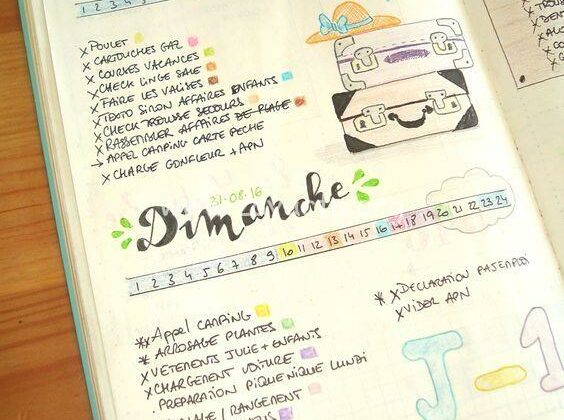 1 2 3 4 5
x POULET
x CARTOUCHES GAZ
x COURSES VACANCES
x CHECK LINGE SALE
x FAIRE LES VALISES
x TOTO SIRON AFFAIRES ENFANTS
x CHECK TROUSSE SECOURS
x RASSEMBLER AFFAIRES DE PLAGE
→ APPEL CAMPING CARTE PECHE
x CHARGE GONFLEUR + APN
31-08-16
Dimanche
1 2 3 4 5 6 7 8 9 10 11 12 13 14 15 16 17 18 19 20 21 22 23 24
*x APPEL CAMPING
* ARROSAGE PLANTES
x VETEMENTS JULIE + ENFANTS
x CHARGEMENT VOITURE
. PREPARATION PIQUE NIQUE LUNDI
/ RANGEMENT
* x DECLARATION PAJEMPLOI
x VIDER APN
J-1